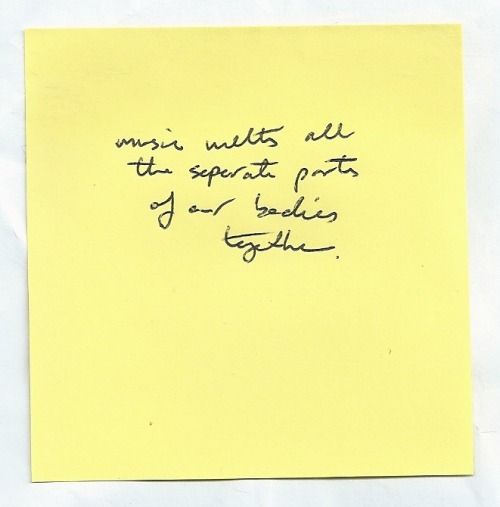 music melts all
the separate parts
of our bodies
together.